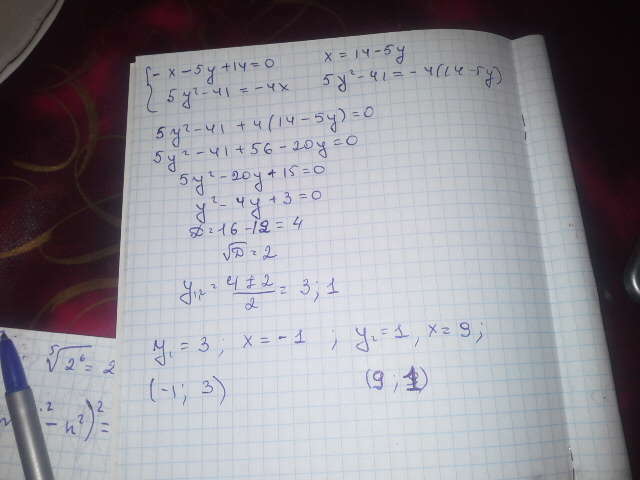 {-x-5y+14=0    x=14-5y
5y²-41=-4x    5y²-41=-4(14-5y)
5y²-41+4(14-5y)=0
5y²-41+56-20y=0
5y²-20y+15=0
y²-4y+3=0
D=16-12=4
√D=2
y₁,₂=4±2/2=3;1
y₁=3; x=-1; y₂=1, x=9;
(-1; 3)    (9; 1)
⁵√2⁶=2
-h²)²=